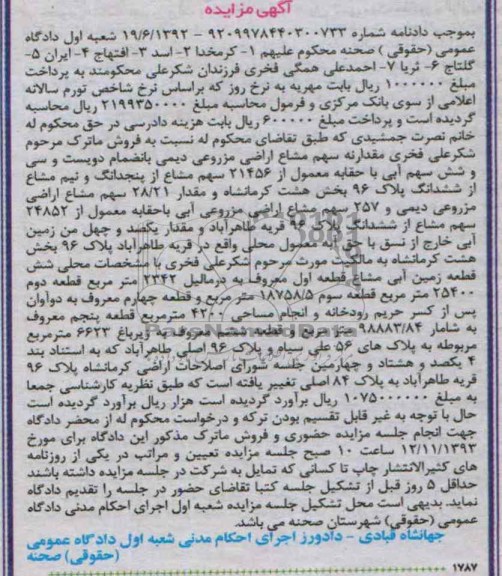 آگهی مزایده
بموجب دادنامه شماره ۹۲۰۹۹۷۸۴۴۰۳۰۰۷۳۳ – ۱۹/۶/۱۳۹۲ شعبه اول دادگاه
عمومی (حقوقی) صحنه محکوم علیهم ۱- کرمخدا ۲- اسد ۳- افتهاج ۴- ایران ۵-
گلتاج ۶- ثریا ۷- احمدعلی همگی فخری فرزندان شکرعلی محکومند به پرداخت
مبلغ ۱۰۰۰۰۰۰ ریال بابت مهریه به نرخ روز که براساس نرخ شاخص تورم سالانه
اعلامی از سوی بانک مرکزی و فرمول محاسبه مبلغ ۲۱۹۹۳۵۰۰۰۰ ریال محاسبه
گردیده است و پرداخت مبلغ ۶۰۰۰۰۰ ریال بابت هزینه دادرسی در حق محکوم له
خانم نصرت جمشیدی که طبق تقاضای محکوم له نسبت به فروش ماترک مرحوم
شکرعلی فخری مقدارنه سهم مشاع اراضی مزروعی دیمی بانضمام دویست و سی
و شش سهم آبی با حقابه معمول از ۲۱۴۵۶ سهم مشاع از پنجدانگ و نیم مشاع
از ششدانگ پلاک ۹۶ بخش هشت کرمانشاه و مقدار ۲۸/۲۱ سهم مشاع اراضی
مزروعی دیمی و ۲۵۷ سهم مشاع اراضی مزروعی آبی باحقابه معمول از ۲۴۸۵۲
سهم مشاع از ششدانگ پلاک ۹۶ قریه طاهرآباد و مقدار یکصد و چهل من زمین
آبی خارج از نسق با حق آبه معمول محلی واقع در قریه طاهرآباد پلاک ۹۶ بخش
هشت کرمانشاه به مالکیت مورث مرحوم شکرعلی فخری با مشخصات محلی شش
قطعه زمین آبی مشاع قطعه اول معروف به درمالیل ۲۳۴۲ متر مربع قطعه دوم
۲۵۴۰۰ متر مربع قطعه سوم ۱۸۷۵۸/۵ متر مربع و قطعه چهارم معروف به دوآوان
پس از کسر حریم رودخانه و انجام مساحی ۴۲۰۰ مترمربع قطعه پنجم معروف
به شامار ۹۸۸۸۳/۸۴ متر مربع و قطعه ششم معروف به زیرباغ ۶۶۲۳ مترمربع
مربوطه به پلاک های ۵۶ علی سیاه و پلاک ۹۶ اصلی طاهرآباد که به استناد بند
۴ یکصد و هشتاد و چهارمین جلسه شورای اصلاحات اراضی کرمانشاه پلاک ۹۶
قریه طاهرآباد به پلاک ۸۴ اصلی تغییر یافته است که طبق نظریه کارشناسی جمعا
به مبلغ ۱۰۷۵۰۰۰۰۰۰ ریال برآورد گردیده است هزار ریال برآورد گردیده است
حال با توجه به غیر قابل تقسیم بودن ترکه و درخواست محکوم له از محضر دادگاه
جهت انجام جلسه مزایده حضوری و فروش ماترک مذکور این دادگاه برای مورخ
۱۲/۱۱/۱۳۹۳ ساعت ۱۰ صبح جلسه مزایده تعیین و مراتب در یکی از روزنامه
های کثیرالانتشار چاپ تا کسانی که تمایل به شرکت در جلسه مزایده داشته باشند
حداقل ۵ روز قبل از تشکیل جلسه کتبا تقاضای حضور در جلسه را تقدیم دادگاه
نماید. بدیهی است محل تشکیل جلسه مزایده شعبه اول اجرای احکام مدنی دادگاه
عمومی (حقوقی) شهرستان صحنه می باشد.
جهانشاه قبادی – دادورز اجرای احکام مدنی شعبه اول دادگاه عمومی
(حقوقی) صحنه
۱۷۸۷